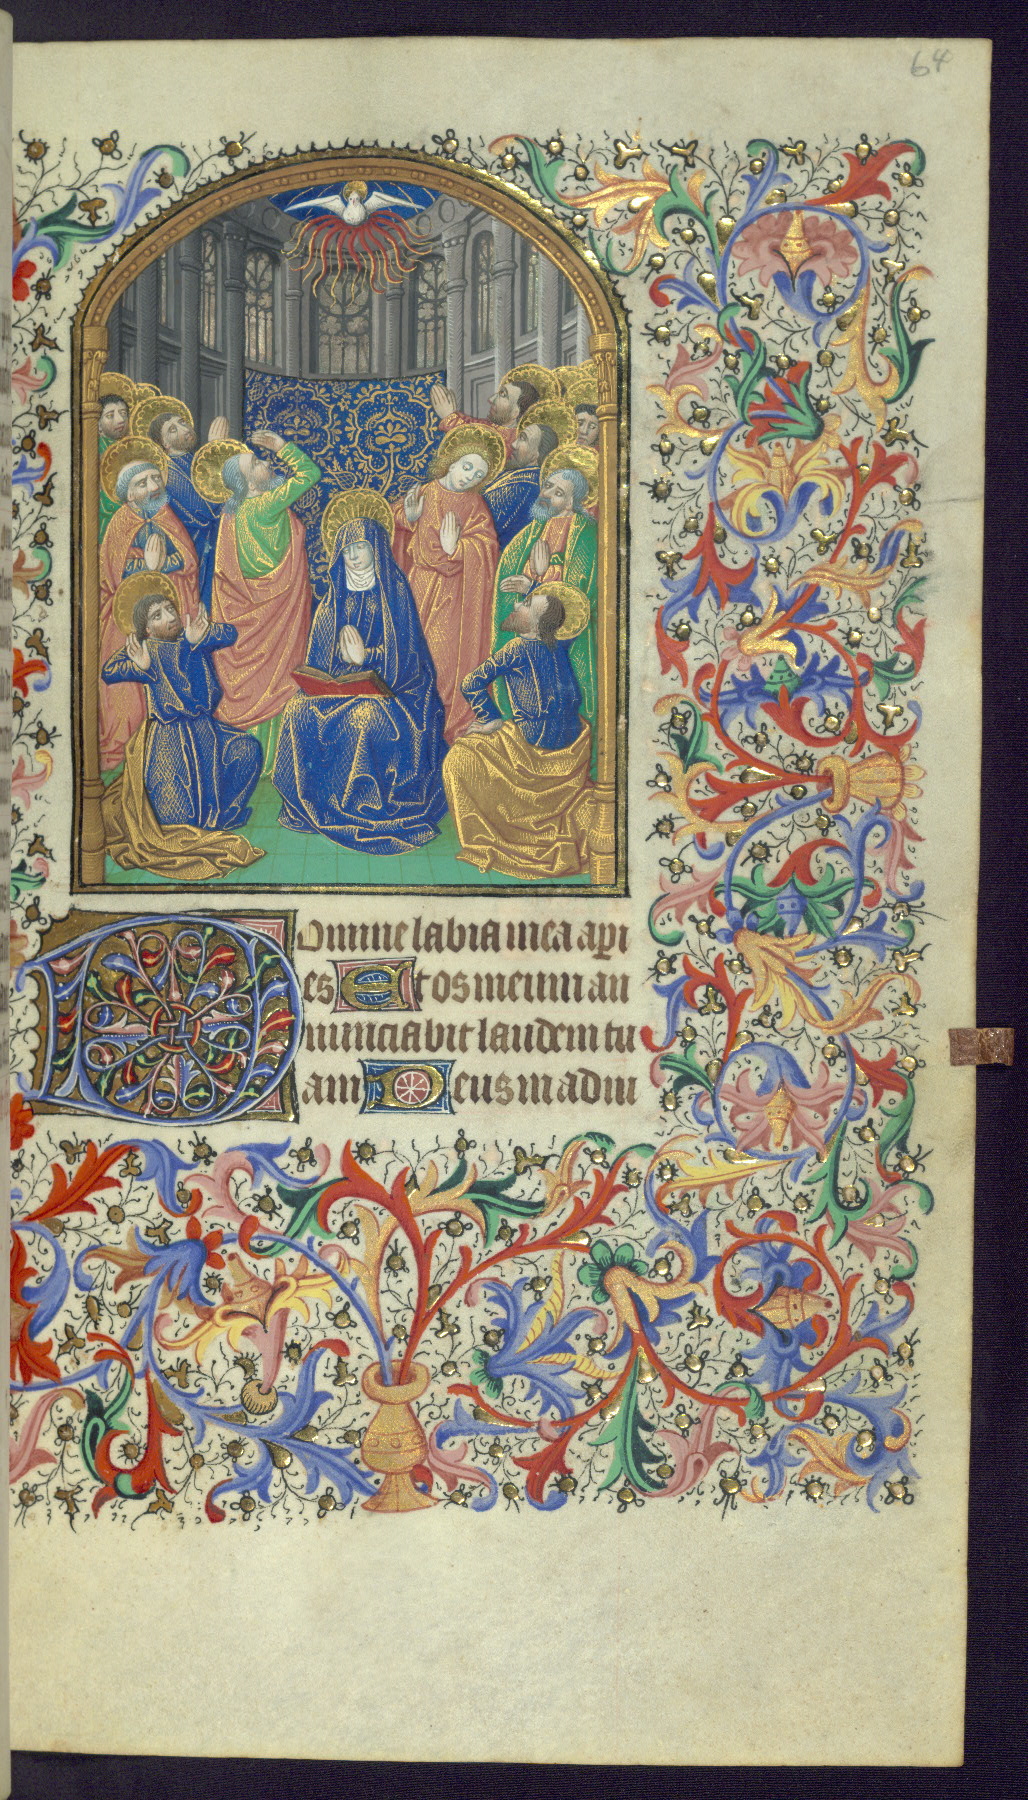 64
Domine labia mea apri
es Et os meum an
nunciabit laudem tu
am Deus in adiu